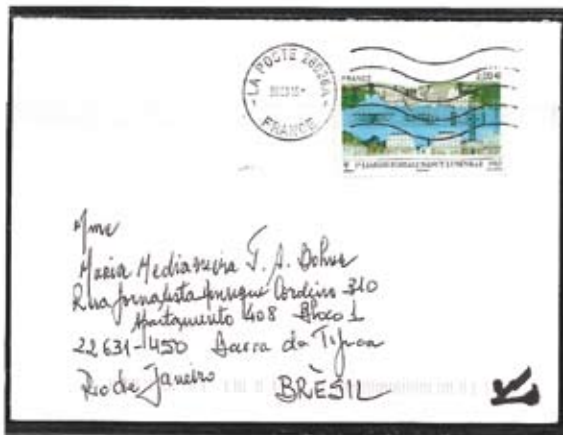 LA POSTE 28026A
FRANCE
FRANCE 2,00 €
Mme
Maria Medianeira F. A. Bohrer
Rua Jornalista Henrique Cordeiro 310
Apartamento 408 Bloco 1
22631-450 Barra da Tijuca
Rio de Janeiro BRÈSIL